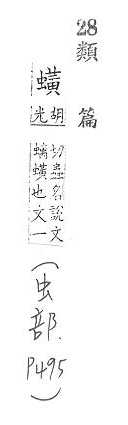 28 類篇
蟥 胡光切蟲名說文蟥也文一 (虫部. P495)